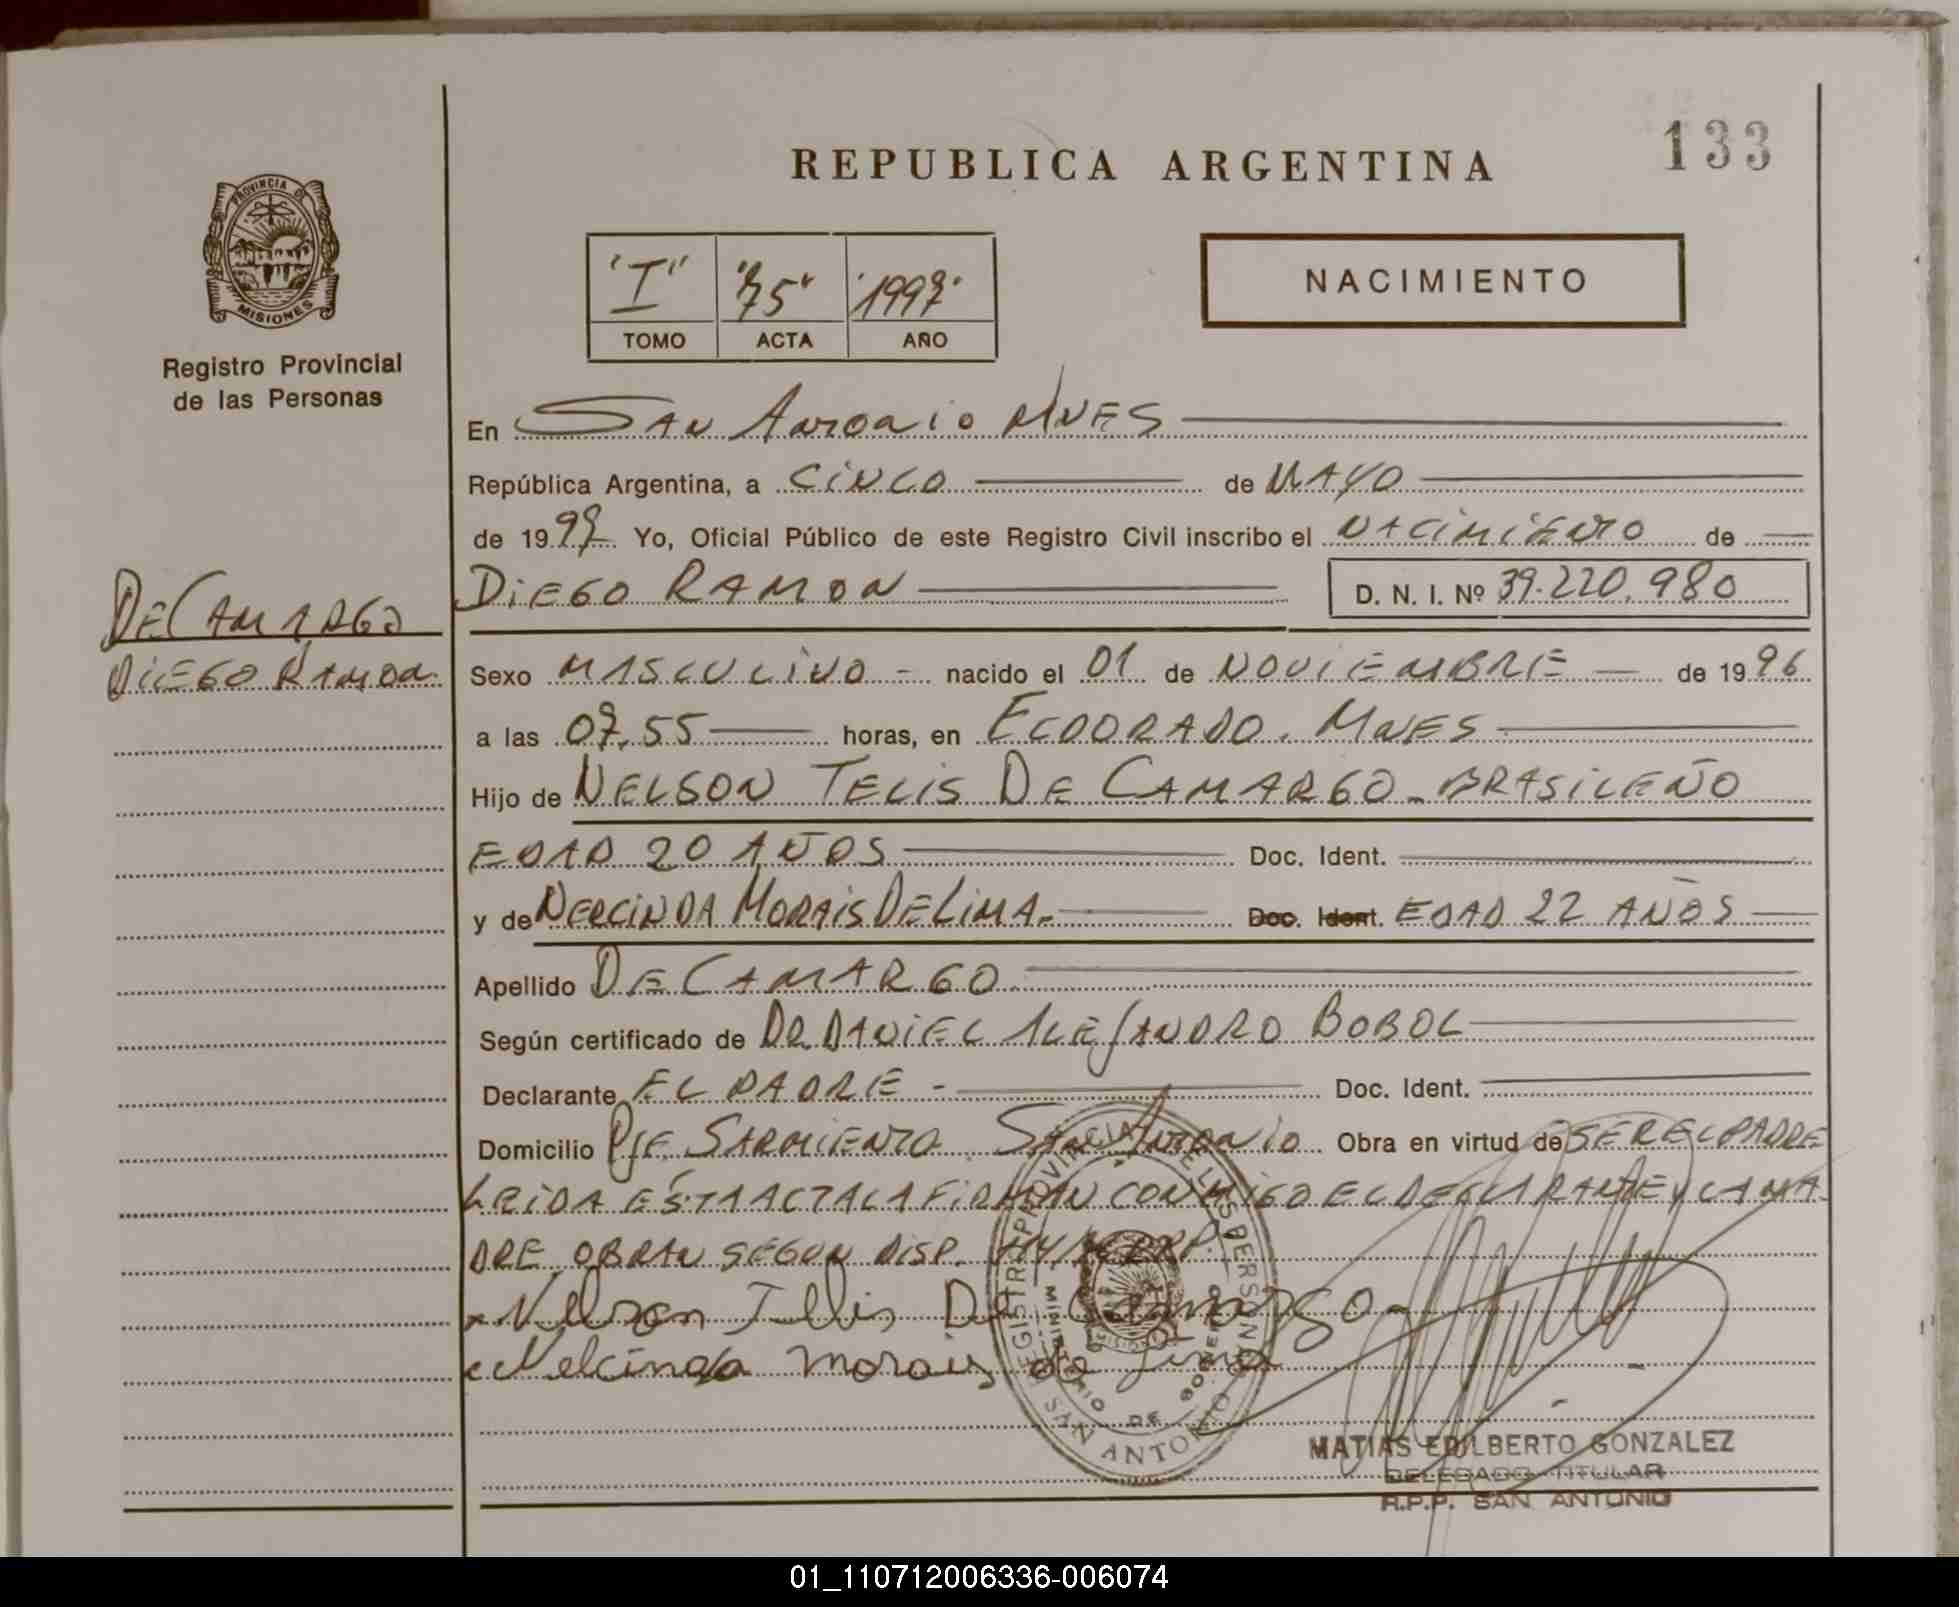 133
REPUBLICA ARGENTINA
PROVINCIA DE
MISIONES
Registro Provincial
de las Personas
"I" "75" "1997"
TOMO ACTA AÑO
NACIMIENTO
En SAN ANTONIO MNES
República Argentina, a CINCO de MAYO
de 1997 Yo, Oficial Público de este Registro Civil inscribo el NACIMIENTO de
DIEGO RAMON D. N. I. Nº 39.220.980
DE CAMARGO
DIEGO RAMON.
Sexo MASCULINO - nacido el 01 de NOVIEMBRE de 1996
a las 07.55 horas, en ELDORADO. MNES
Hijo de NELSON TELIS DE CAMARGO - BRASILEÑO
EDAD 20 AÑOS Doc. Ident.
y de NERCINDA MORAIS DE LIMA.- Doc. Ident. EDAD 22 AÑOS
Apellido DE CAMARGO
Según certificado de DR. DANIEL ALEJANDRO BOBOL
Declarante EL PADRE - Doc. Ident.
Domicilio PJE. SARMIENTO. SAN ANTONIO Obra en virtud de SER EL PADRE
LEIDA ESTA ACTA LA FIRMAN CONMIGO EL DECLARANTE Y LA MA-
DRE OBRAN SEGUN DISP. RPP.
x Nelson Tellis De Camargo-
x Nelcinda morais de Lima
REGISTRO PROVINCIAL DE LAS PERSONAS
MINISTERIO DE GOBIERNO
MISIONES
SAN ANTONIO
MATIAS EDILBERTO GONZALEZ
DELEGADO TITULAR
R.P.P. SAN ANTONIO
01_110712006336-006074